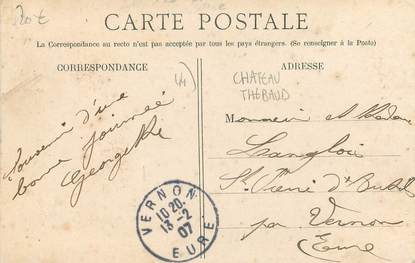 20 €
CARTE POSTALE
La Correspondance au recto n'est pas acceptée par tous les pays étrangers. (Se renseigner à la Poste)
CORRESPONDANCE
44
Souvenir d'une
bonne journée
Georgette
ADRESSE
CHATEAU
THEBAUD
Monsieur et Madame
Langlois
St Pierre d'
par Vernon
Eure
VERNON
10 20.
13-2
07
EURE